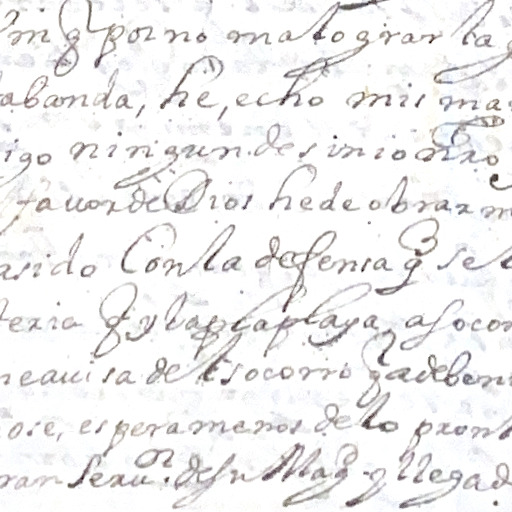 q̃ por no malograr la
abanda, he, echo mis ma
igo ningun desinio nr̃o
favor de Dios he de obrar m
asido Con la defensa q̃ se
teria q̃ la plaza, a socor
me avisa del socorro q̃ a de ben
ose, esperamenos de lo pront
ran Seruº. de su Magᵈ. y llegad